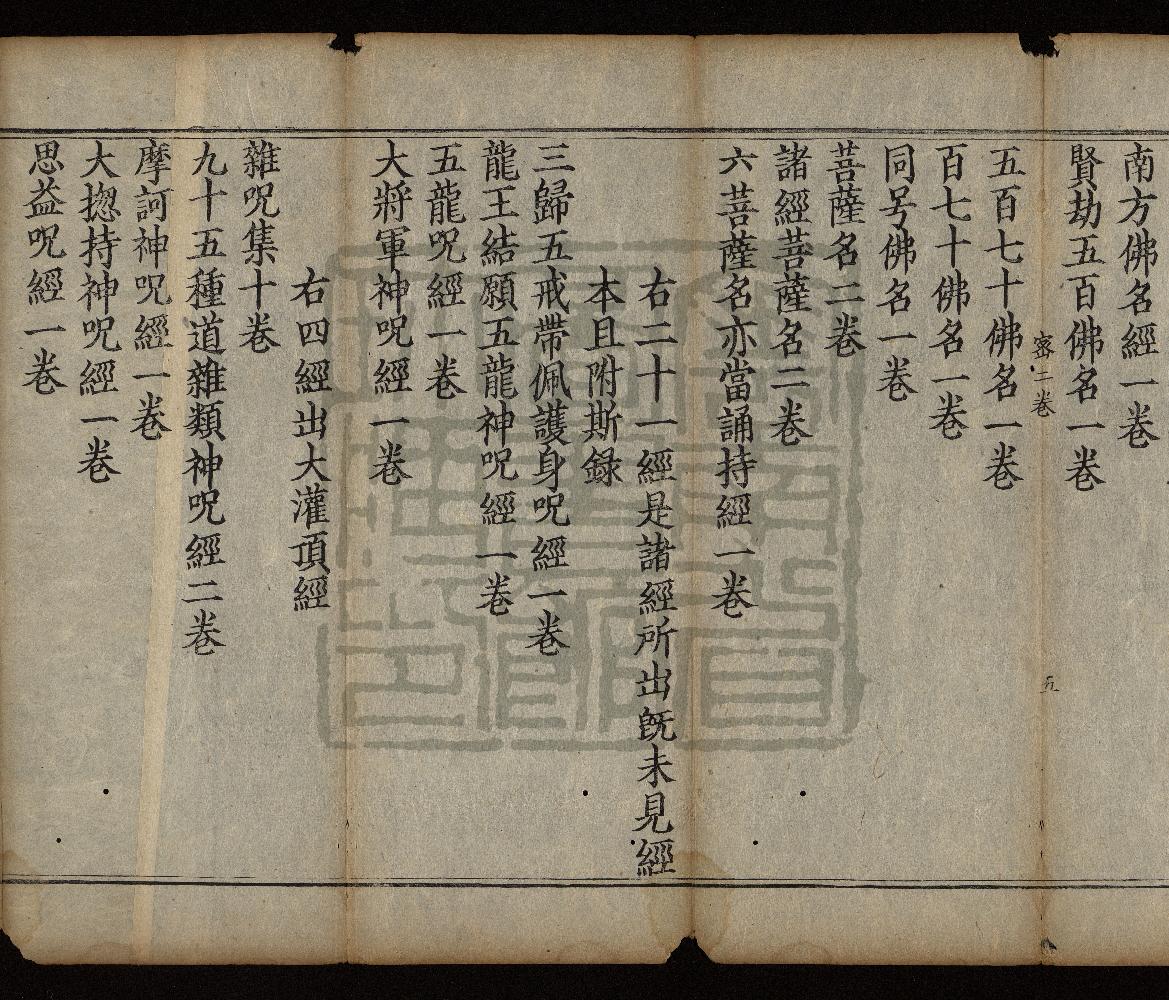 南方佛名經一卷
賢劫五百佛名一卷
密二卷
五
五百七十佛名一卷
百七十佛名一卷
同号佛名一卷
菩薩名二卷
諸經菩薩名二卷
六菩薩名亦當誦持經一卷
右二十一經是諸經所出旣未見經
本且附斯録
三歸五戒帶佩護身呪經一卷
龍王結願五龍神呪經一卷
五龍呪經一卷
大將軍神呪經一卷
右四經出大灌頂經
雜呪集十卷
九十五種道雜類神呪經二卷
摩訶神呪經一卷
大揔持神呪經一卷
思益呪經一卷